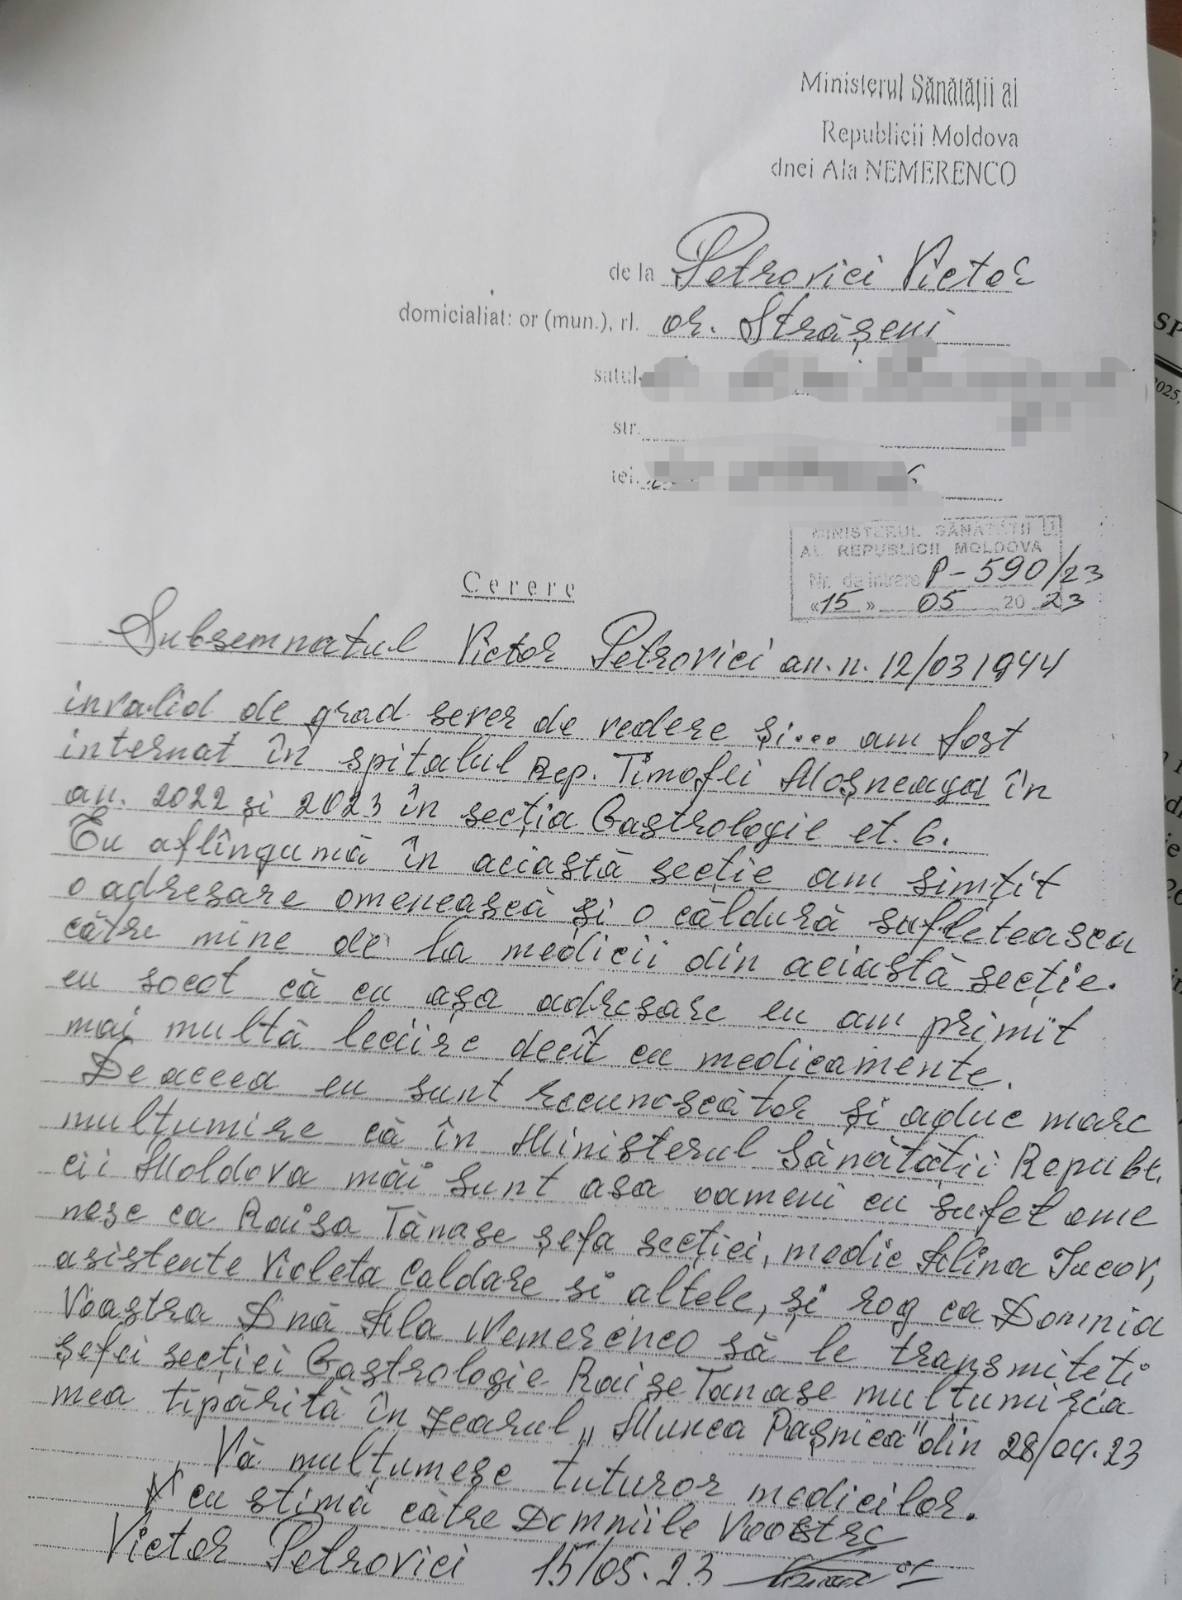 Ministerul Sănătății al
Republicii Moldova
dnei Ala NEMERENCO
de la Petrovici Victor
domicialiat: or (mun.), rl. or. Strășeni
satul
str.
tel.
MINISTERUL SĂNĂTĂȚII
AL REPUBLICII MOLDOVA
Nr. de intrare P-590/23
«15» 05 2023
Cerere
Subsemnatul Victor Petrovici an. n. 12/03 1944
invalid de grad sever de vedere și... am fost
internat în spitalul Rep. Timofei Moșneaga în
an. 2022 și 2023 în secția Gastrologie et. 6.
Eu aflîngumă în aciastă secție am simțit
o adresare omenească și o căldură sufletească
către mine de la medicii din aciastă secție.
eu socot că cu așa adresare eu am primit
mai multă leciire decît cu medicamente.
De aceea eu sunt recunoscător și aduc marc
multumire că în Ministerul Sănătății Republ.
cii Moldova măi sunt asa oameni cu sufet ome
nesc ca Raisa Tănase șefa secției, medic Alina Iacov,
asistente Violeta Caldare si altele, și rog ca Domnia
Voastra Dnă Ala Nemerenco să le transmiteti
șefei secției Gastrologie Raise Tanase multumirea
mea tipărită în zearul „Munca Pașnica" din 28/04.23
Vă mulțumesc tuturor medicilor.
cu stimă către Domniile Voastre
Victor Petrovici 15/05.23